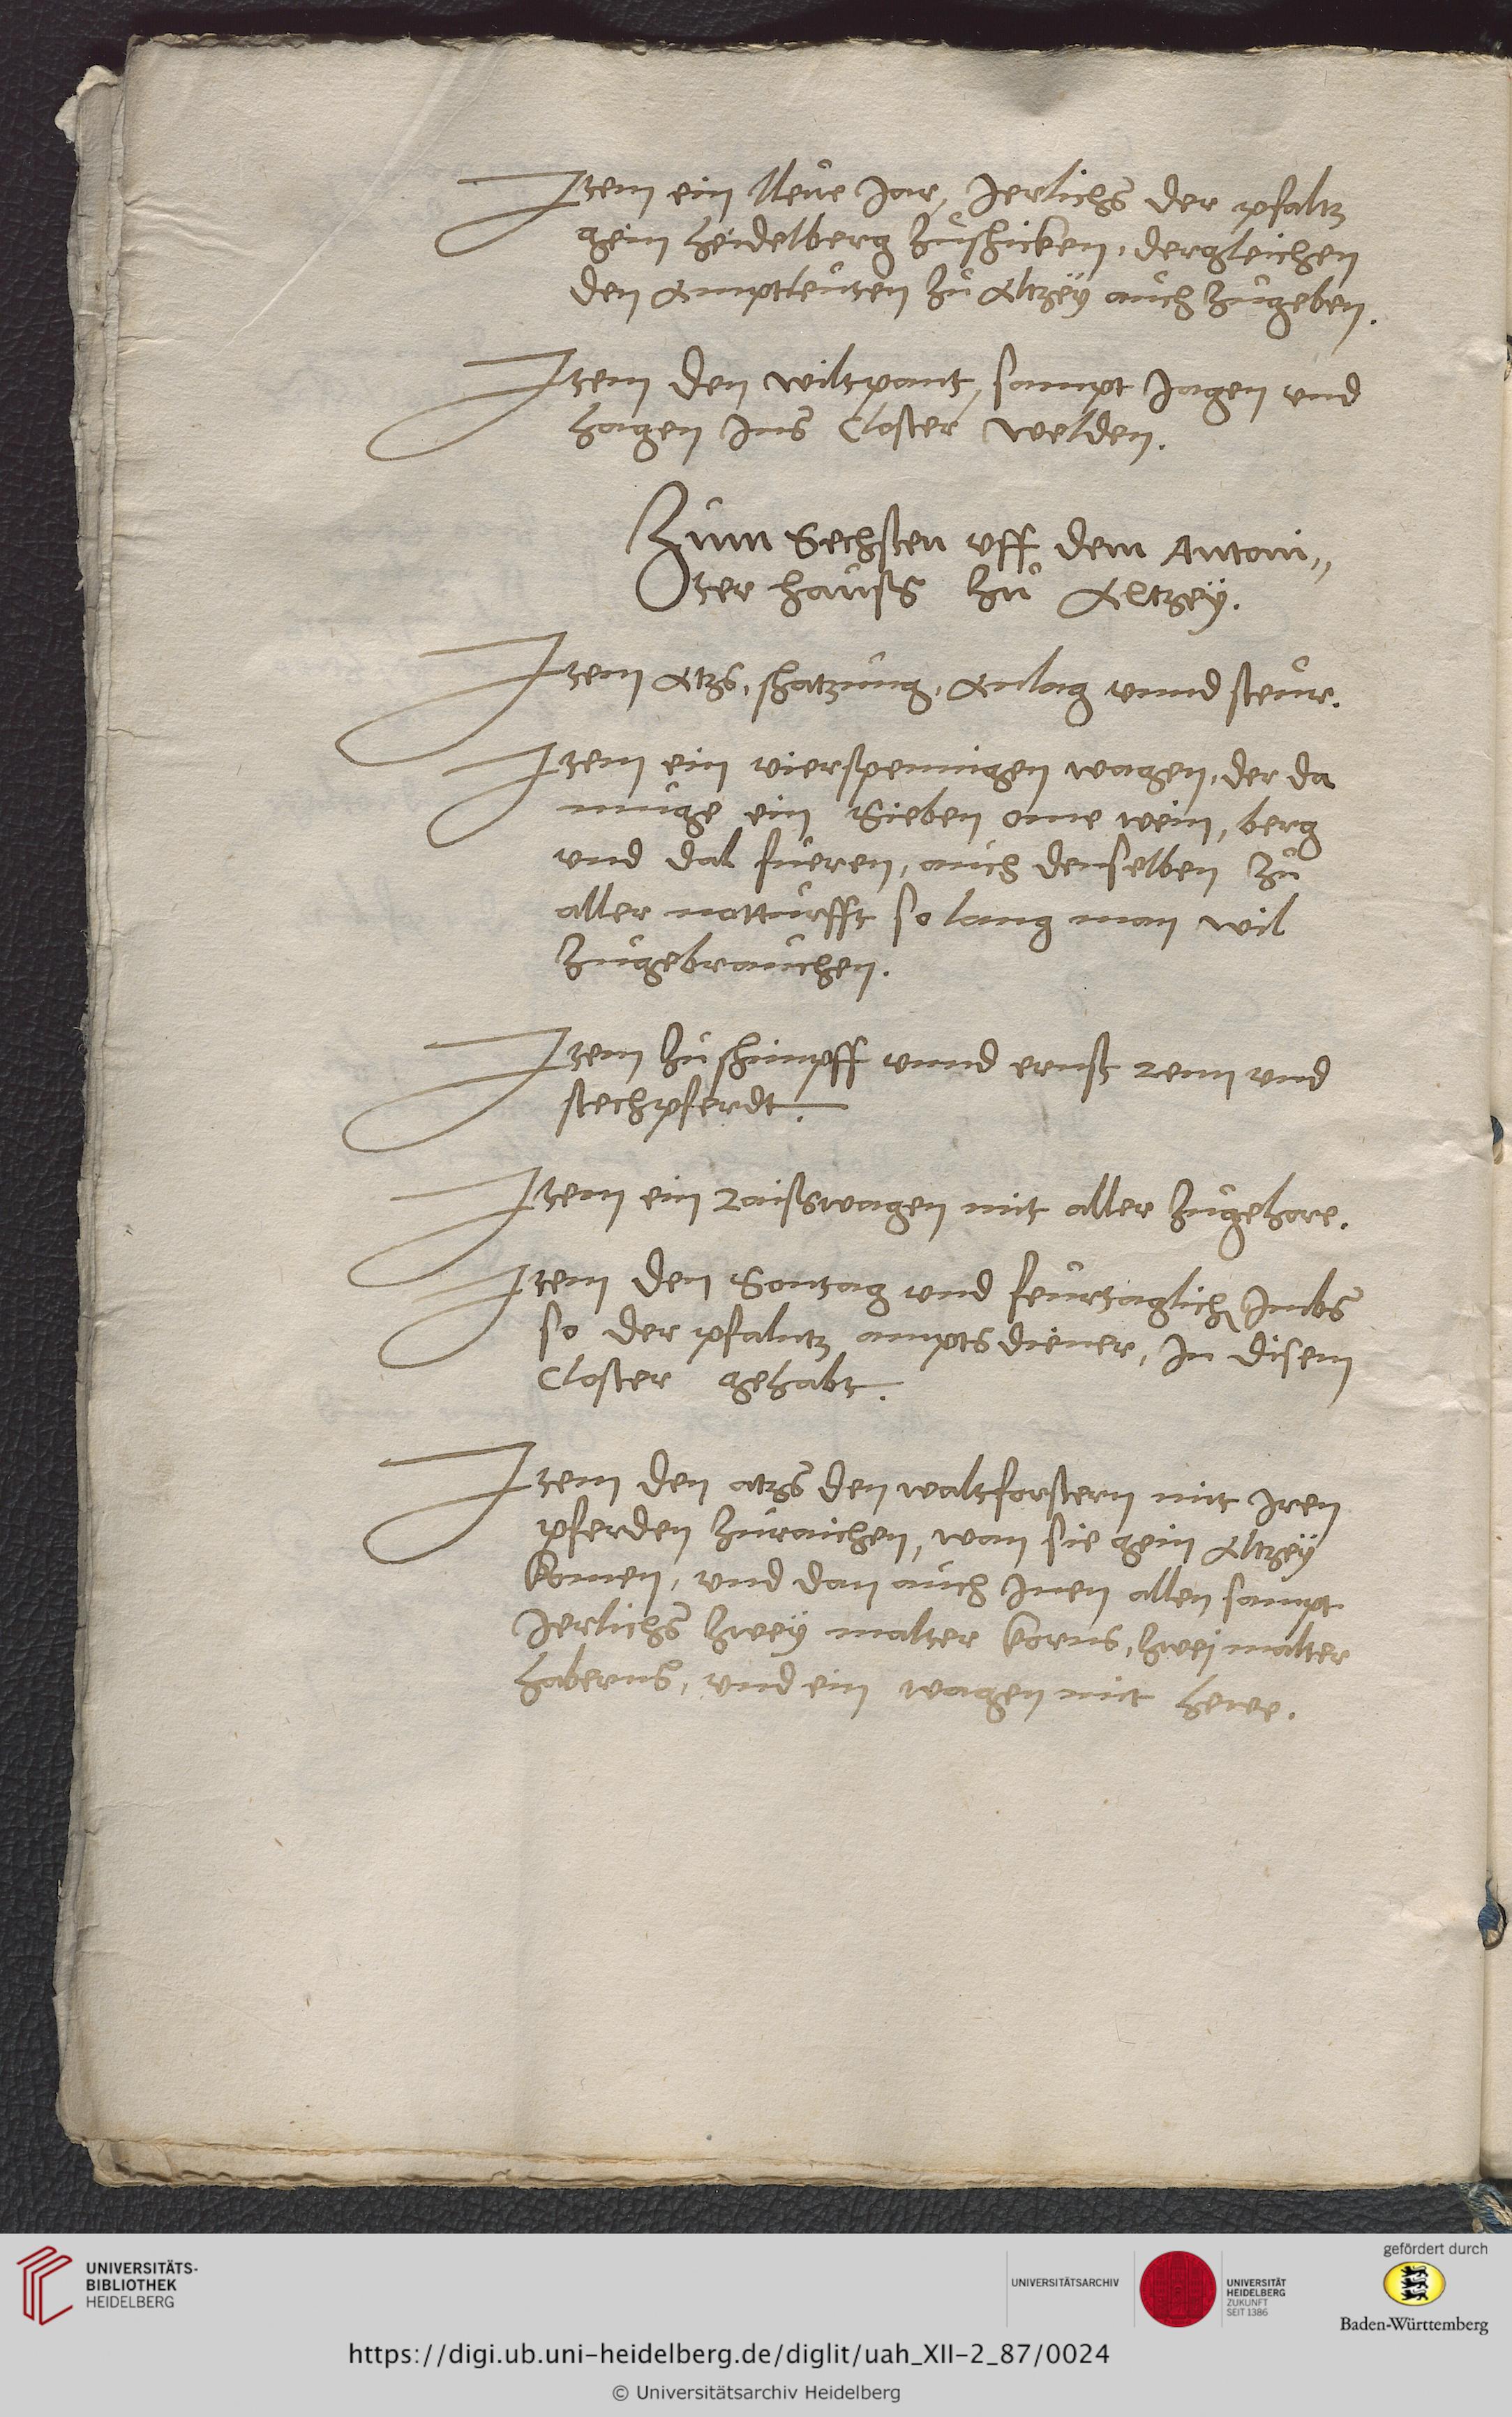 Item ein Neüe Jar, Jerlichs der pfaltz
gein Heidelberg zuschicken, dergleichen
den Amptleuten zu Altzey auch zugeben.
Item den wiltpant, sampt Jagen und
hagen Ins Closter welden.
Zum Sechsten uff dem Antoni„
ter hauss zu Altzey.
Item Atzs, schatzung, Anlag unnd steur.
Item ein vierspennigen wagen, der da
muge ein Sieben ome wein, berg
und dal fueren, auch denselben zu
aller notturfft so lang man wil
zugebrauchen.
Item zu schimpff unnd ernst renn und
stechpferdt.
Item ein raisswagen mit aller zugehore.
Item den Sontag und feurtaglich Imbs
so der pfalntz ampts diener, In disem
Closter gehabt.
Item den atzs den waltforstern mit Iren
pferden zuraichen, wan sie gein Altzey
komen, und dan auch Inen allen sampt
Jerlichs zwey malter korns, zwei malter
haberns, und ein wagen mit hewe.
UNIVERSITÄTS-
BIBLIOTHEK
HEIDELBERG
UNIVERSITÄTSARCHIV
UNIVERSITÄT
HEIDELBERG
ZUKUNFT
SEIT 1386
gefördert durch
Baden-Württemberg
https://digi.ub.uni-heidelberg.de/diglit/uah_XII-2_87/0024
© Universitätsarchiv Heidelberg